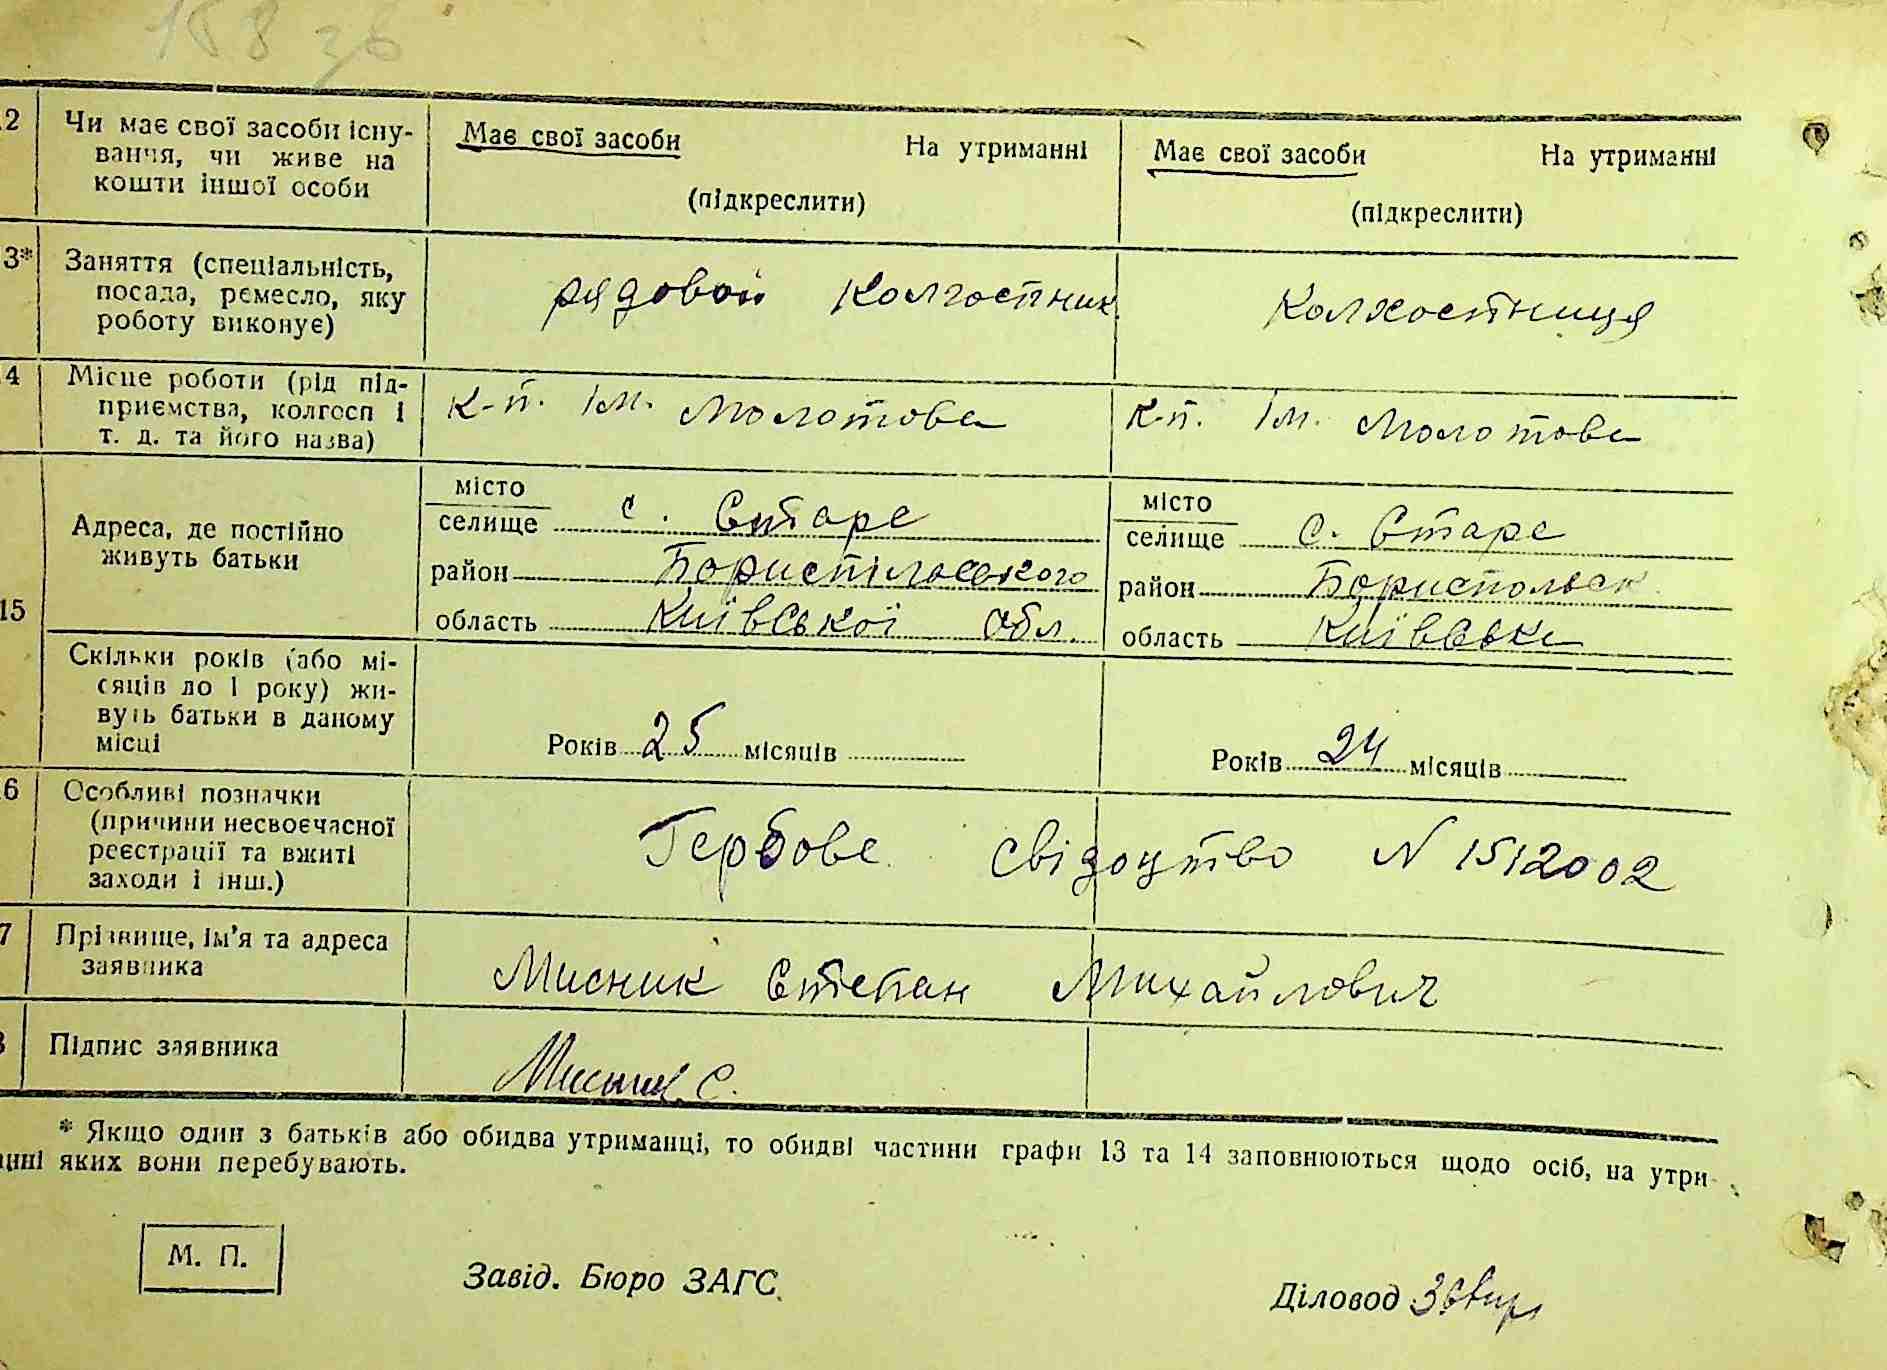 188 зв
12 Чи має свої засоби існу-
вання, чи живе на
кошти іншої особи
Має свої засоби На утриманні
(підкреслити)
Має свої засоби На утриманні
(підкреслити)
13* Заняття (спеціальність,
посада, ремесло, яку
роботу виконує)
рядовой колгоспник
Колхостниця
14 Місце роботи (рід під-
приємства, колгосп і
т. д. та його назва)
к-п. ім. Молотова
к-п. ім. Молотова
15 Адреса, де постійно
живуть батьки
місто
селище с. Старе
район Бориспільського
область Київської обл.
місто
селище с. Старе
район Бориспольск
область Київська
Скільки років (або мі-
сяців до 1 року) жи-
вуть батьки в даному
місці
Років 25 місяців
Років 24 місяців
16 Особливі позначки
(причини несвоєчасної
реєстрації та вжиті
заходи і інш.)
Гербове свідоцтво N 1512002
17 Прізвище, ім'я та адреса
заявника
Мисник Степан Михайлович
18 Підпис заявника
Мисник С.
* Якщо один з батьків або обидва утриманці, то обидві частини графи 13 та 14 заповнюються щодо осіб, на утри-
манні яких вони перебувають.
М. П.
Завід. Бюро ЗАГС
Діловод